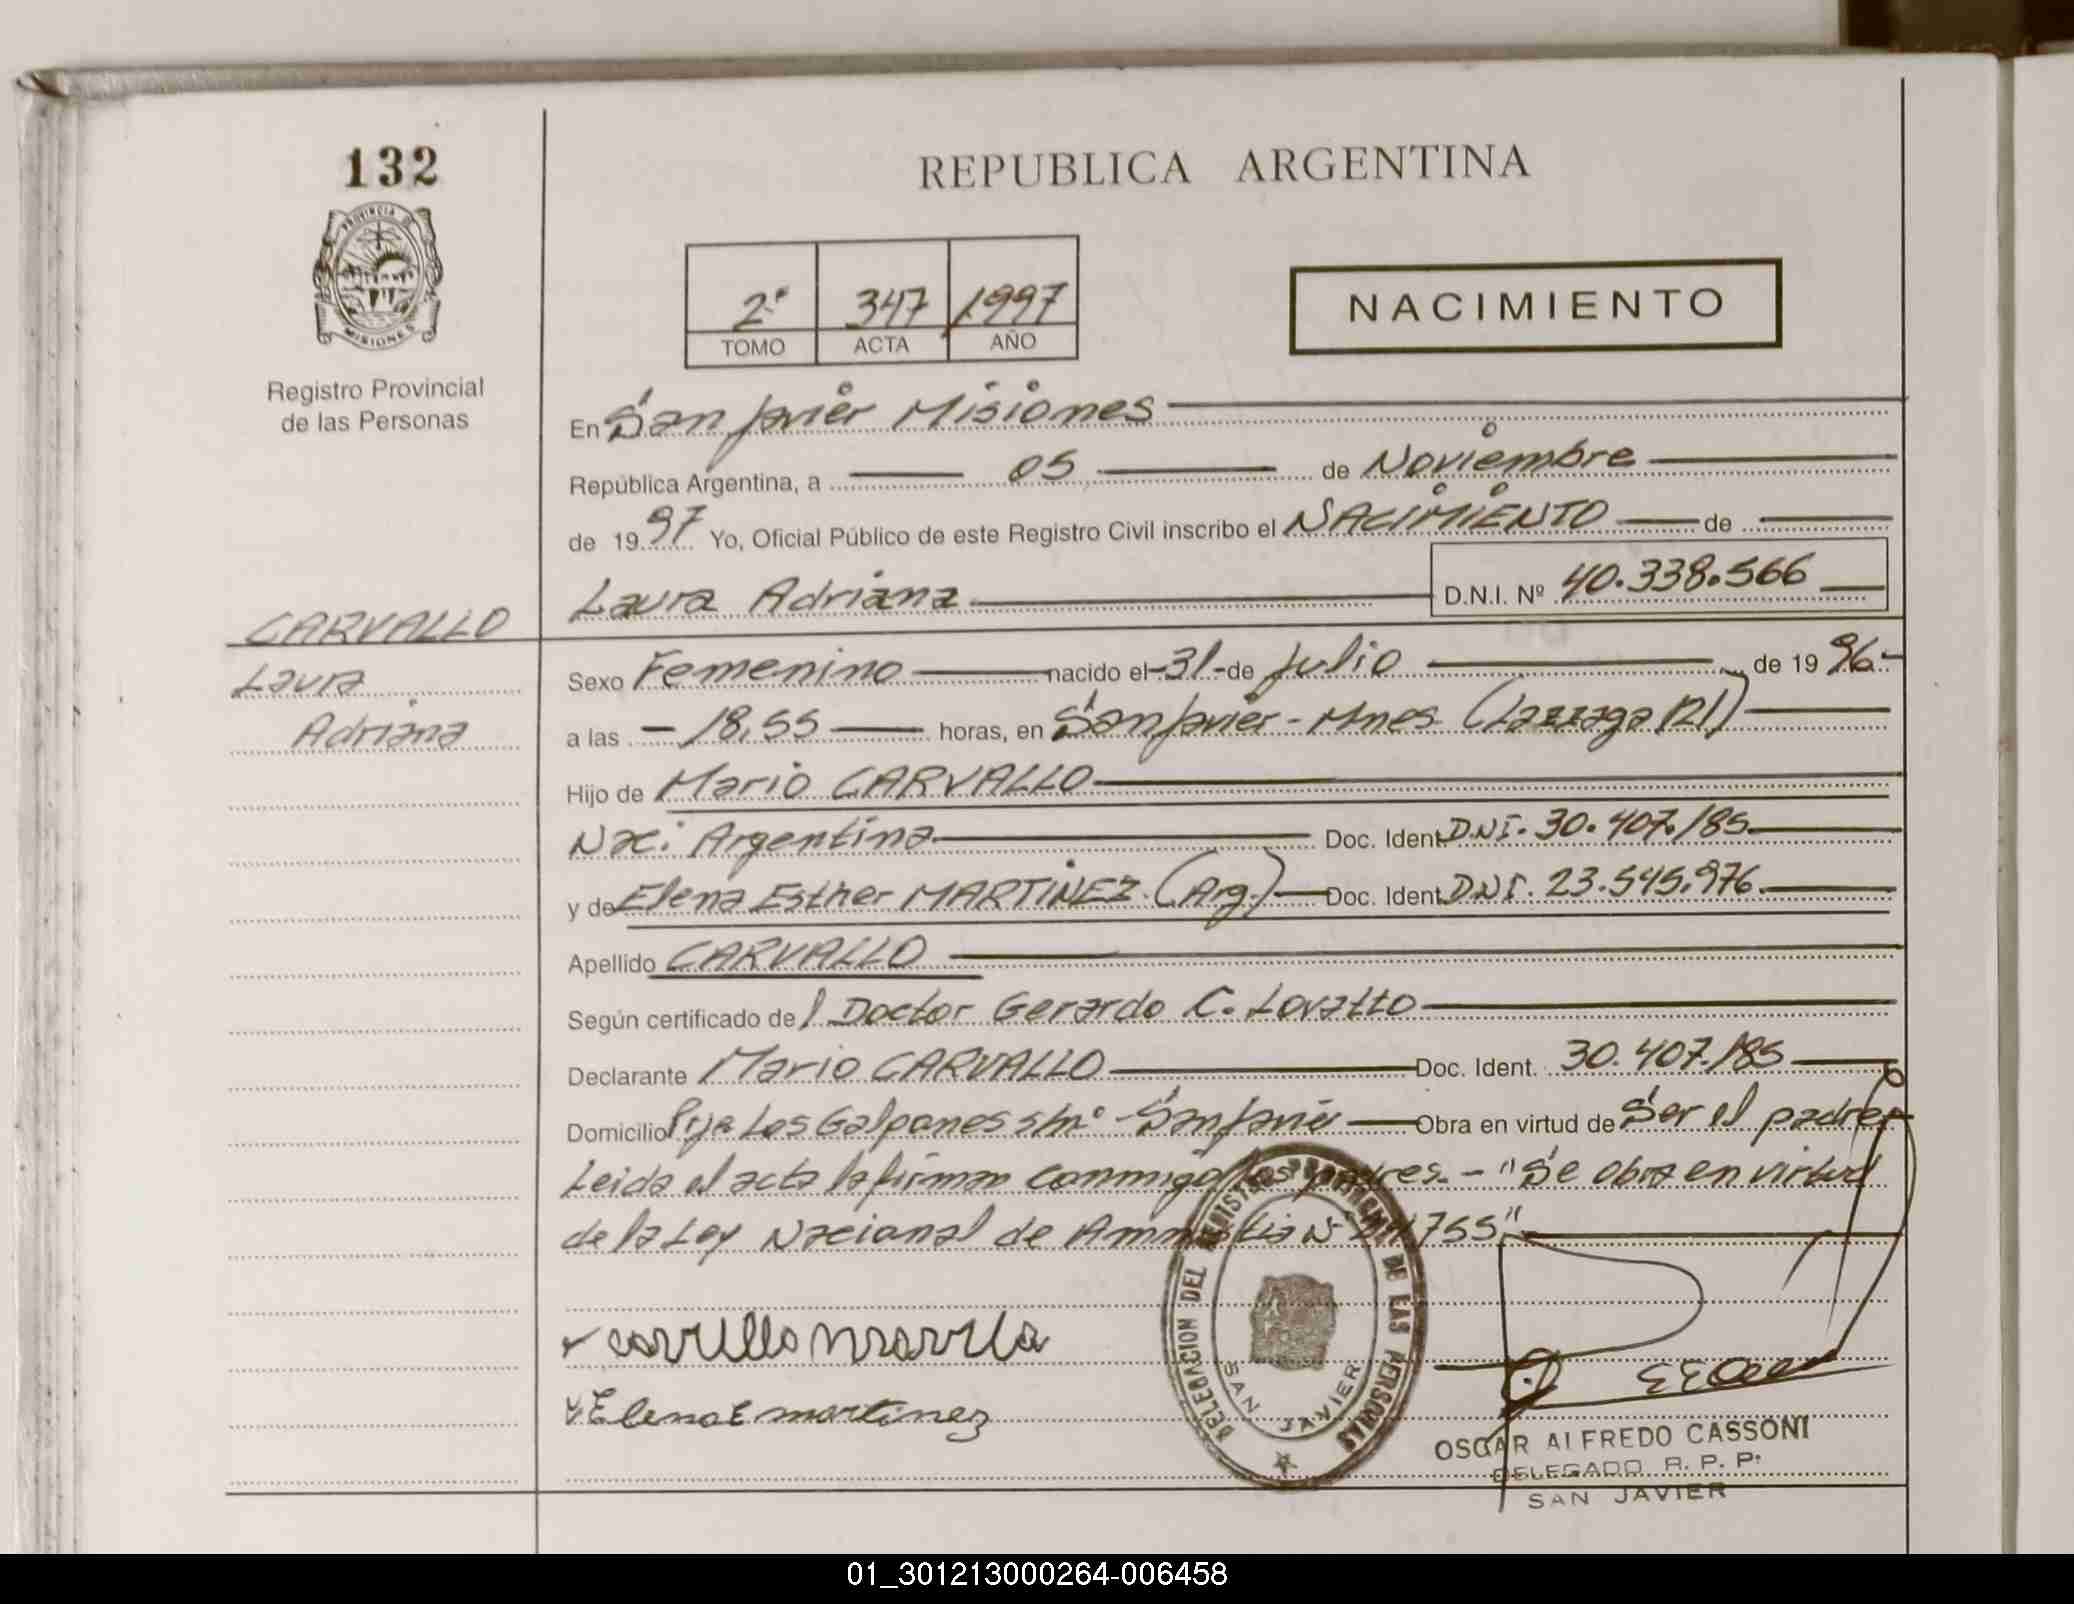 132
REPUBLICA ARGENTINA
PROVINCIA DE
MISIONES
Registro Provincial
de las Personas
2º 347 1997
TOMO ACTA AÑO
NACIMIENTO
En San Javier Misiones
República Argentina, a 05 de Noviembre
de 1997 Yo, Oficial Público de este Registro Civil inscribo el NACIMIENTO de
Laura Adriana D.N.I. Nº 40.338.566
CARVALLO
Laura
Adriana
Sexo Femenino nacido el -31- de Julio de 1996.-
a las - 18,55 horas, en San Javier - Mnes (Lazzaga 121)
Hijo de Mario CARVALLO
Nac. Argentina Doc. Ident. DNI. 30.407.185
y de Elena Esther MARTINEZ (Arg.) Doc. Ident. DNI. 23.545.976
Apellido CARVALLO
Según certificado del Doctor Gerardo C. Lovatto
Declarante Mario CARVALLO Doc. Ident. 30.407.185
Domicilio Pje Los Galpones s/nº - San Javier Obra en virtud de Ser el padre
Leida el acta la firman conmigo los padres.- "Se obra en virtud
de la Ley Nacional de Amnistia Nº 24755"
Elena E martinez
DELEGACION DEL REGISTRO PROVINCIAL DE LAS PERSONAS
SAN JAVIER
OSCAR ALFREDO CASSONI
DELEGADO R. P. P.
SAN JAVIER
01_301213000264-006458